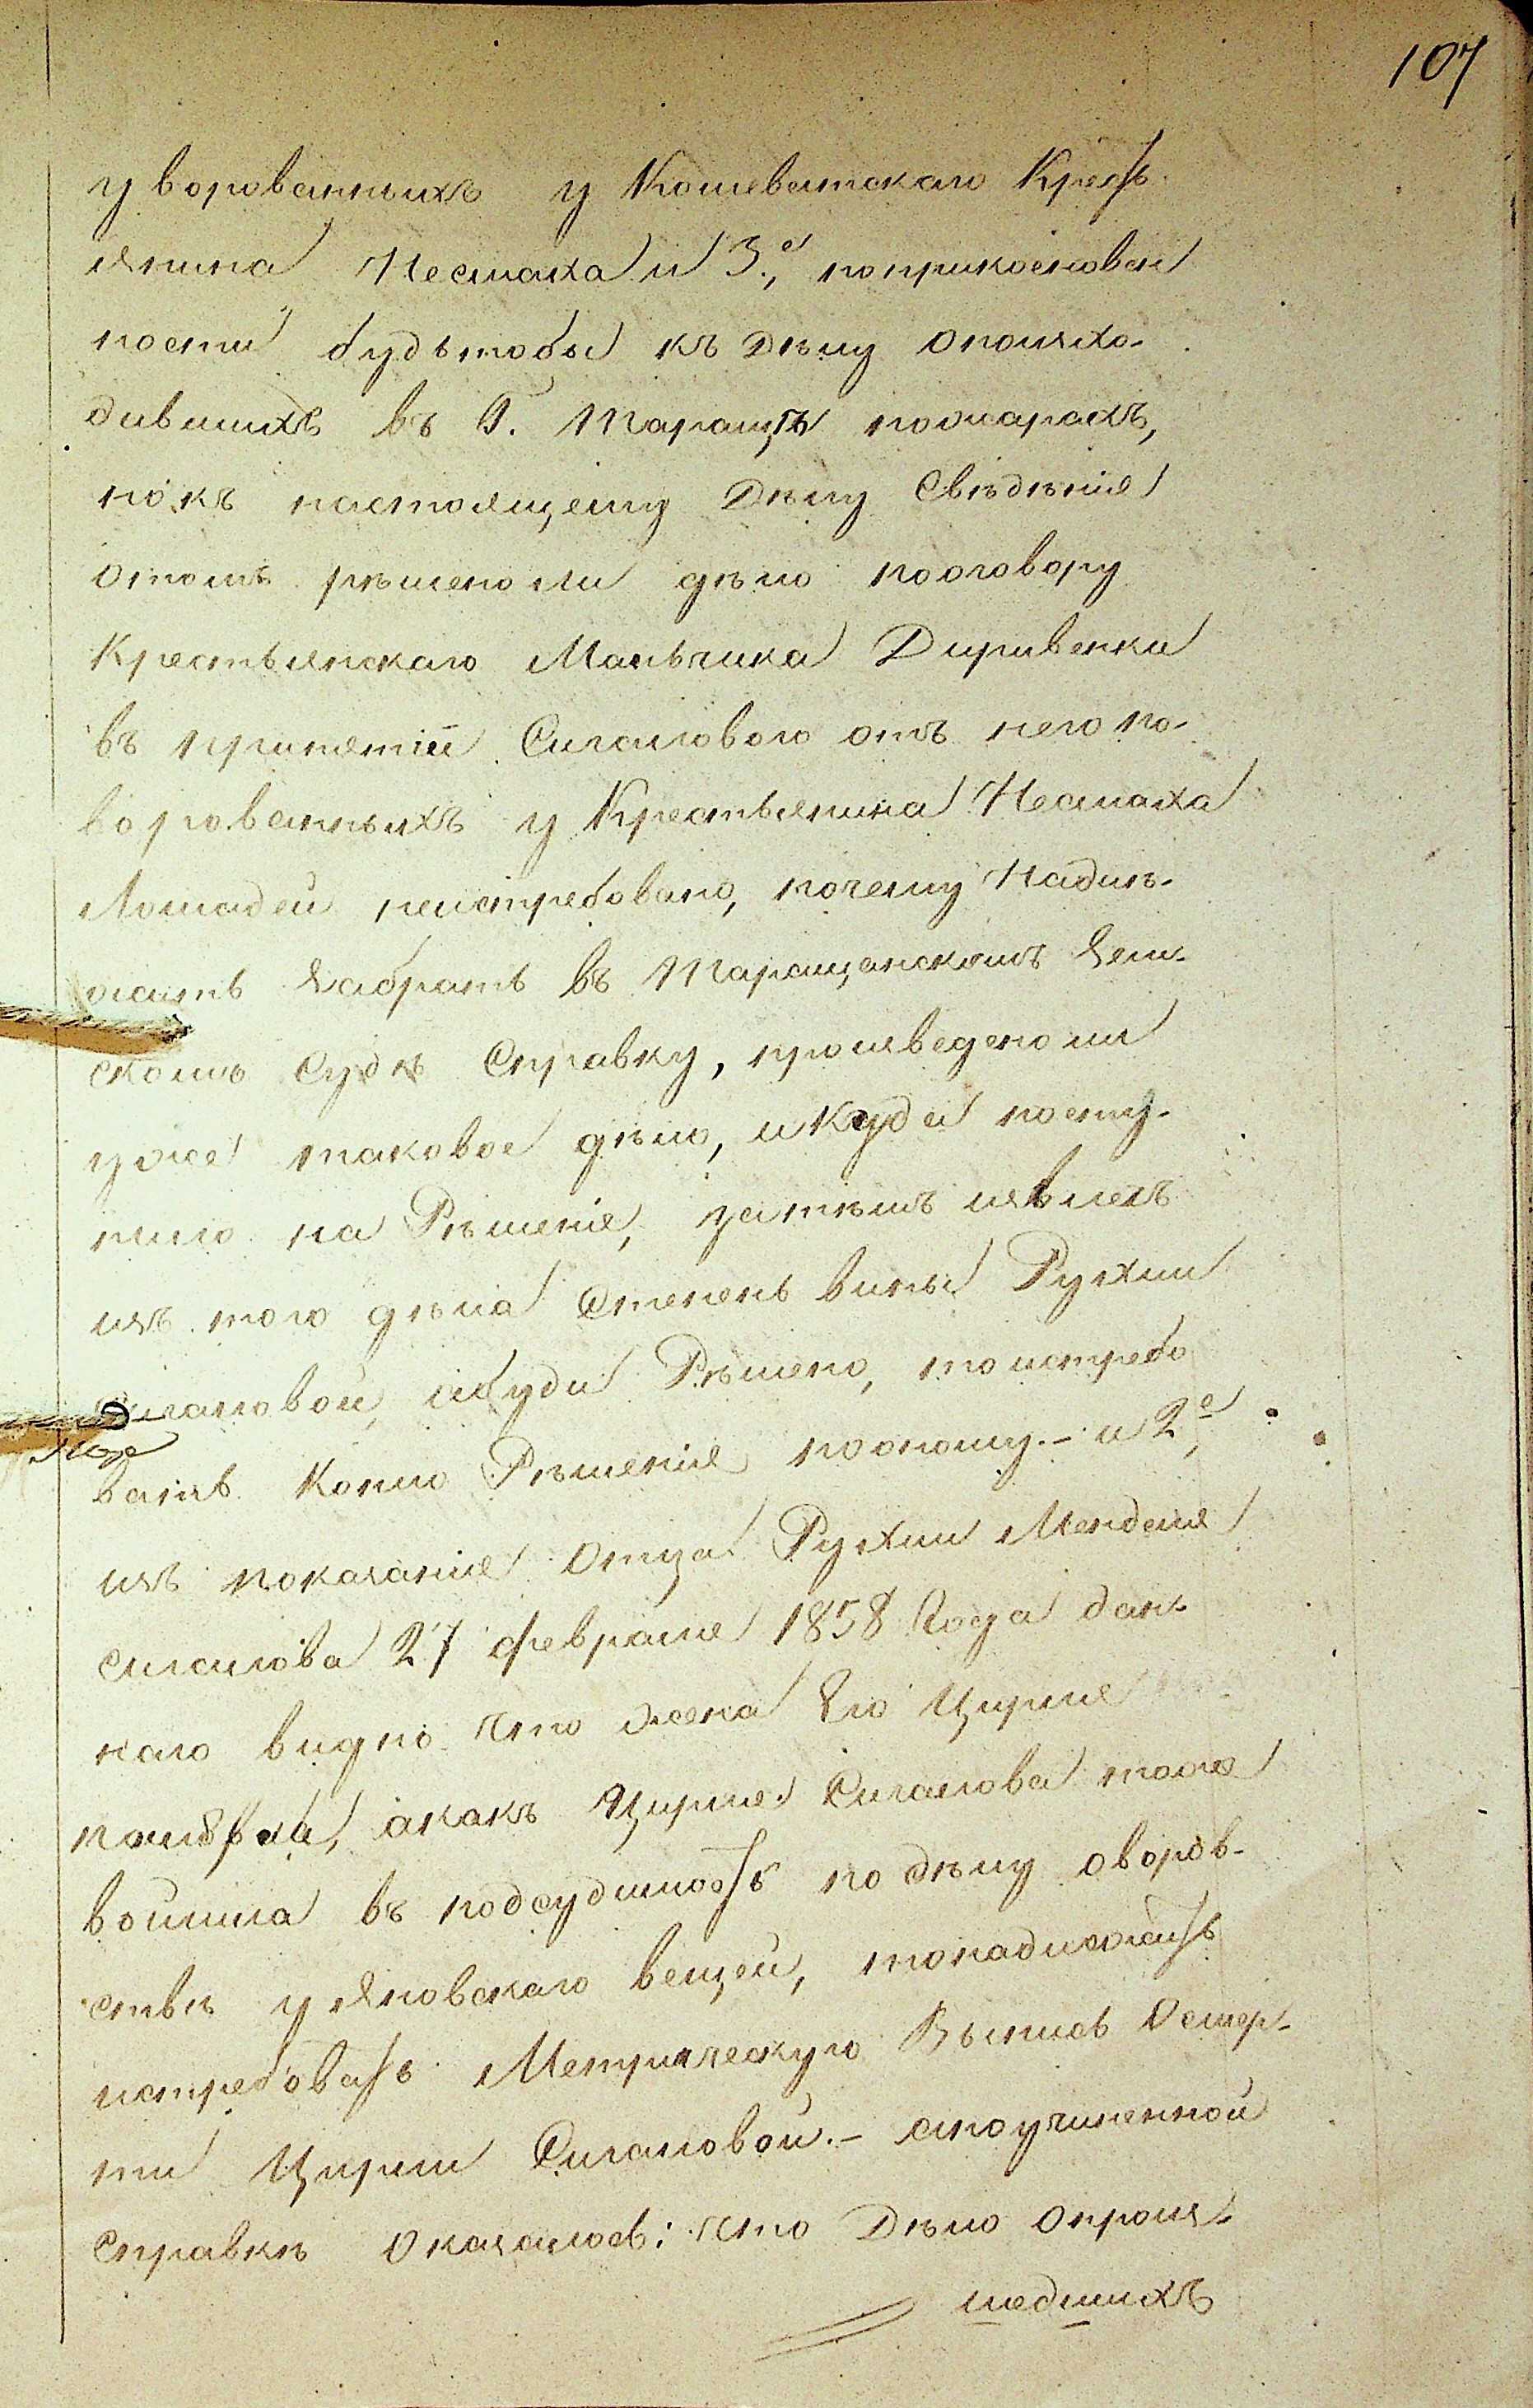 107
уворованныхъ у Кошеватскаго Кресть
янина Несмаха и 3.е, поприкосновен
ности будьтобы къ Дѣлу опоизхо-
дившихъ въ Г. Таращѣ пожарахъ,
но къ настоящему Дѣлу Свѣдѣния
отомъ рѣшено ли дѣло пооговору
Крестьянскаго Мальчика Диривенки
въ принятіи Сигаловою отъ него по-
ворованныхъ у Крестьянина Несмаха
Лошадей неистребовано, почему Надле-
жатъ Забрать въ Таращанскомъ Зем-
скомъ Судѣ Справку, произведено ли
уже таковое дѣло, и куда посту-
пило на Рѣшеніе, затѣмъ извлечь
изъ того дѣла Степень вины Рухли
Сигаловой, ибуди Рѣшено, то истребо
вать Копію Рѣшенія поономy.- и 2е,
изъ показания Отца Рухли Менделя
Сигалова 27 февраля 1858 Года дан-
наго видно что жена Его Цирля
а какъ Цирля Сигалова тоже
войшла въ подсудимость по дѣлу оворов-
ствѣ у Яновскаго вещей, то надлежатъ
истребовать Метрическую Выпись Осмер-
ти Цирли Сигаловой.- а по учиненной
Справкѣ Оказалось: что Дѣло Опроиз-
шедшихъ